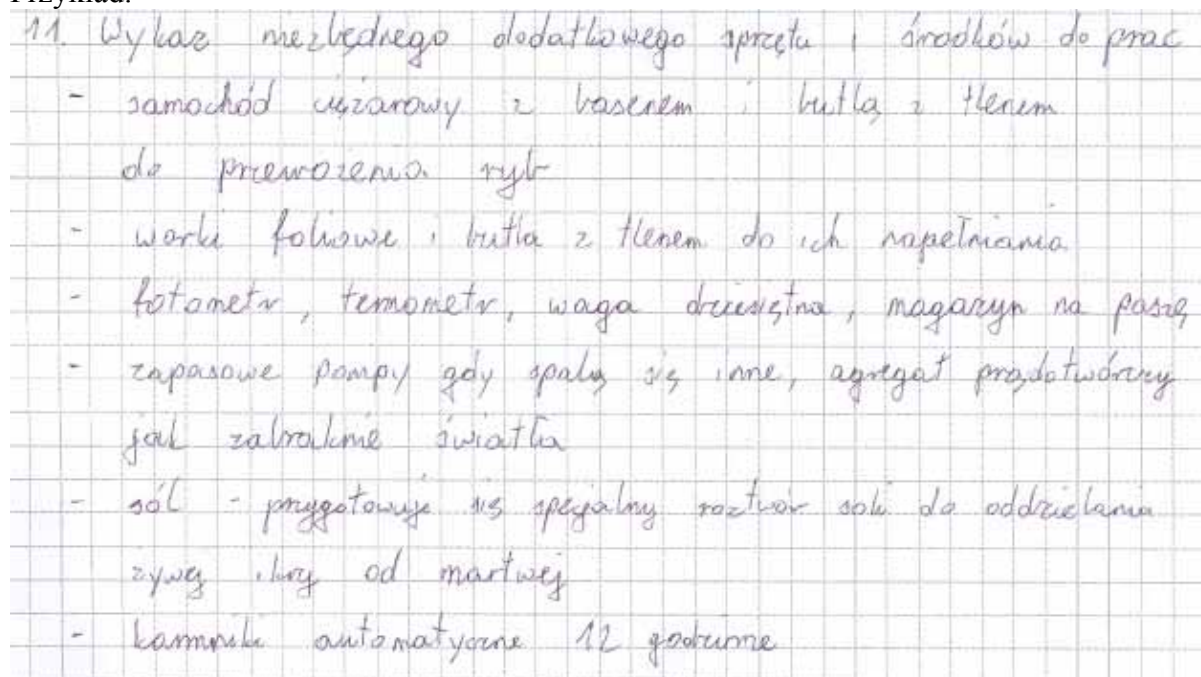 Przykład:
11. Wykaz niezbędnego dodatkowego sprzętu i środków do prac
- samochód ciężarowy z basenem i butlą z tlenem
do przewożenia ryb
- worki foliowe i butla z tlenem do ich napełniania
- fotometr, temometr, waga dziesiętna, magazyn na paszę
- zapasowe pompy gdy spalą się inne, agregat prądotwórczy
jak zabraknie światła
- sól - przygotowuje się specjalny roztwór soli do oddzielania
żywej ikry od martwej
- karmniki automatyczne 12 godzinne